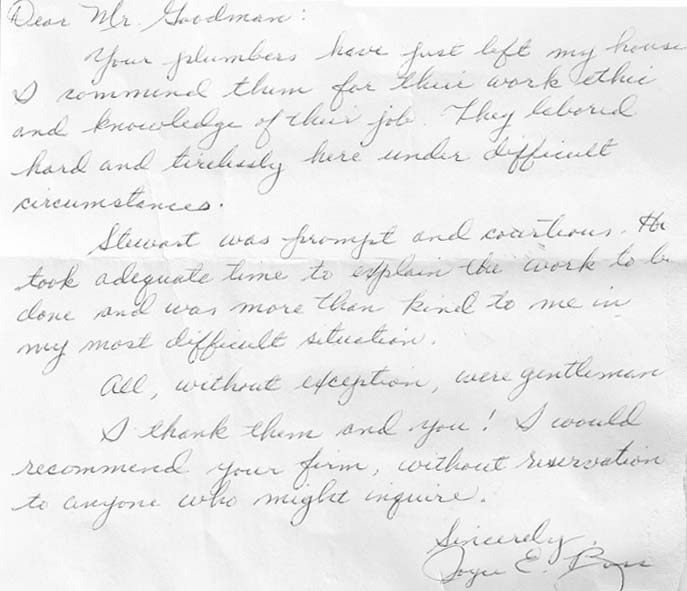 Dear Mr. Goodman:
Your plumbers have just left my house
I commend them for their work ethic
and knowledge of their job. They labored
hard and tirelessly here under difficult
circumstances.
Stewart was prompt and courtious. He
took adequate time to explain the work to be
done and was more than kind to me in
my most difficult situation.
All, without exception, were gentleman
I thank them and you! I would
recommend your firm, without reservation
to anyone who might inquire.
Sincerely,
Joyce E.